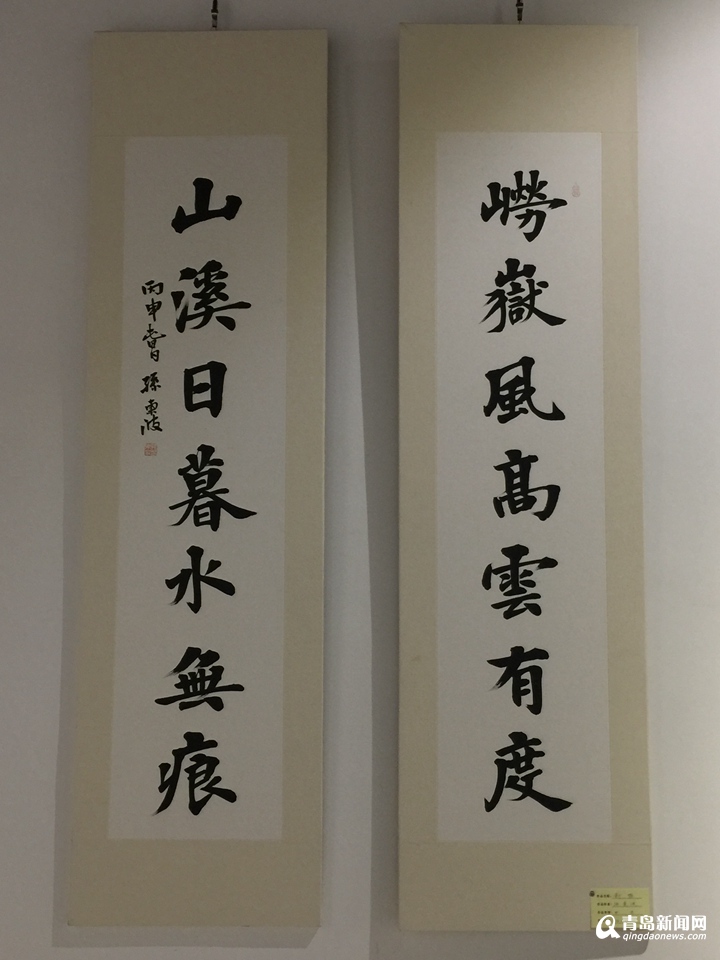 嶗嶽風高雲有度
山溪日暮水無痕
丙申春日孫東波
青岛新闻网
qingdaonews.com